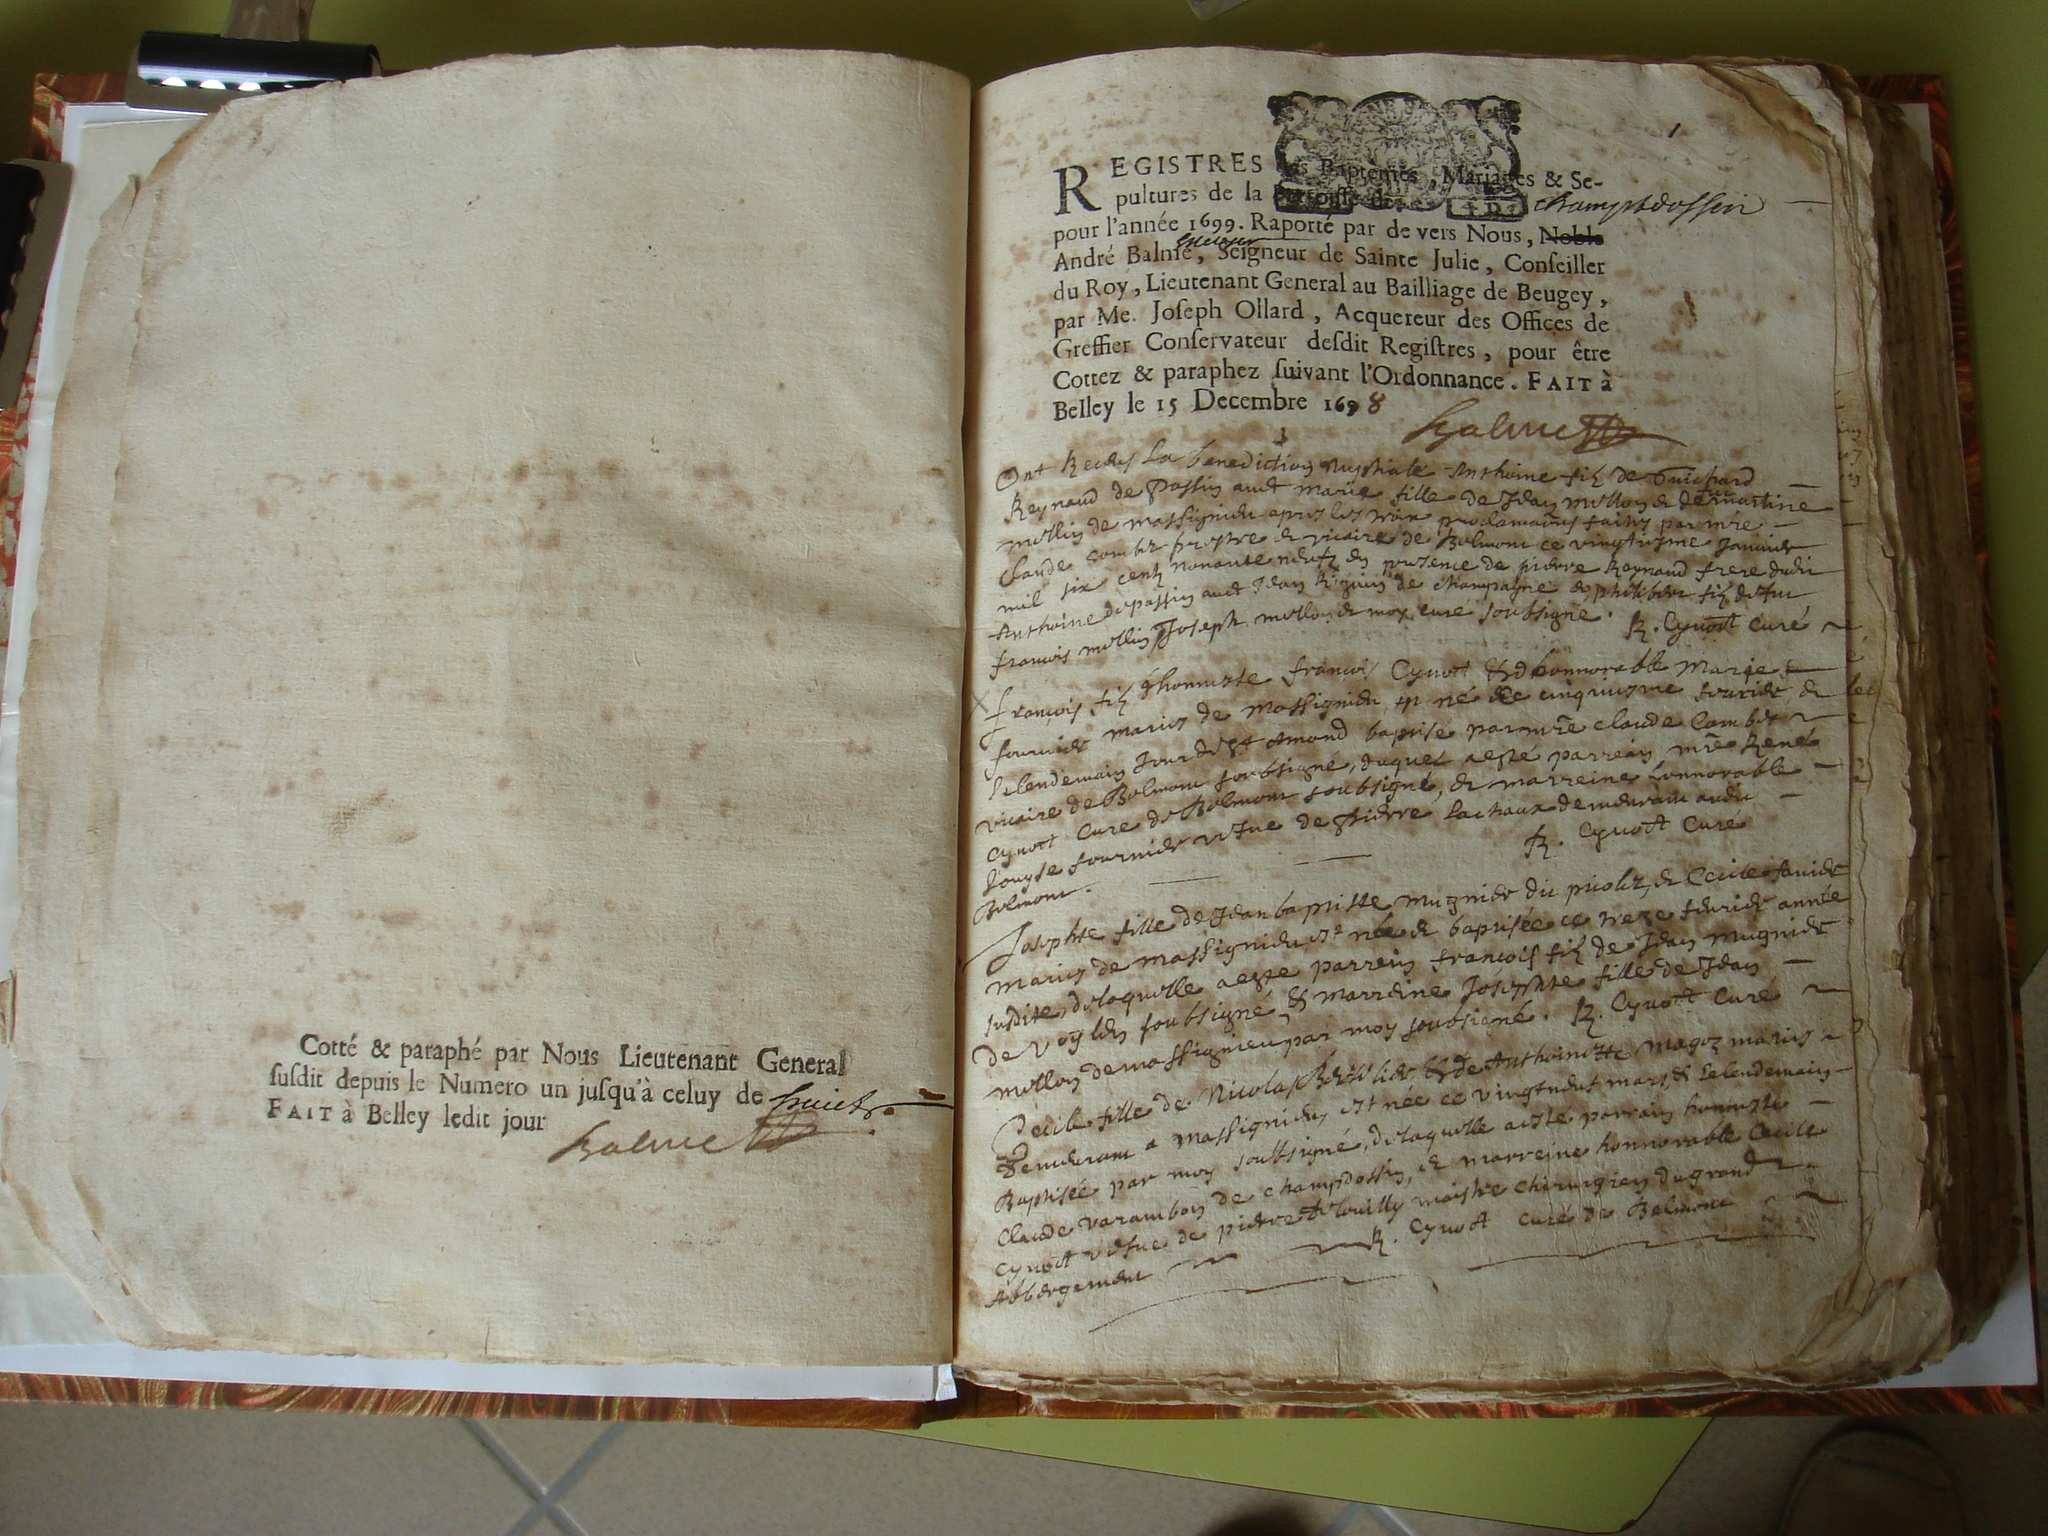 Cotté & paraphé par Nous Lieutenant General
susdit depuis le Numero un jusqu'à celuy de huict
FAIT à Belley ledit jour
Balme
1
REGISTRES des Baptemes, Mariages & Se-
pultures de la Parroisse de champtdossin
pour l'année 1699. Raporté par de vers Nous, Noble
André Balme, Seigneur de Sainte Julie, Conseiller
du Roy, Lieutenant General au Bailliage de Beugey,
par Me. Joseph Ollard, Acquereur des Offices de
Greffier Conservateur desdit Registres, pour être
Cottez & paraphez suivant l'Ordonnance. FAIT à
Belley le 15 Decembre 1698
Balme
Ont Receus La benediction nuptiale Anthoine filz de Guichard
Reynaud de Passin avect marie fille de Jean mollon & de martine
mollin de massignieu apres les trois proclamaons faites par mre
Claude Combet prestre & vicaire de Belmont ce vingtiesme Janvier
mil six centz nonante neufz en presence de pierre Reynaud frere dudit
Anthoine de passin avect Jean de champagne & philibert filz de feu
francois mollin Joseph mollon & moy curé soubsigne. R. Cynott curé
francois filz d'honneste francois Cynott & d'honnorable Marie
fournier mariés de massignieu est né le cinquiesme fevrier & le
lendemain Jour de St Amond baptisé par mre claude Combet
vicaire de Belmont soubsigné, duquel aesté parrein mre René
Cynott Curé de Belmont soubsigné, & marreine honnorable
Louyse fournier vefve de Pierre Lachaux demeurant audit
Belmont. R. Cynott Curé
Josephte fille de Jean baptiste mugnier dit picolez & Cecile Janier
mariés de massignieu est née & baptisée ce treze fevrier année
susdite, delaquelle aeste parrein françois filz de Jean mugnier
de Voylen soubsigné & marreine Josephte fille de Jean
mollon de massignieu par moy soubsigné. R. Cynott Curé
Cecile fille de Nicolas & de Anthoinette magoz mariés
demeurant a massignieu est née ce vingtneuf mars & Lelendemain
Baptisée par moy soubsigné, delaquelle aeste parrain honneste
Claude varambon de champdossin, & marreine honnorable Cecile
Cynott vefve de pierre maistre chirurgien du grand
Abbergement R. Cynott curé de Belmont